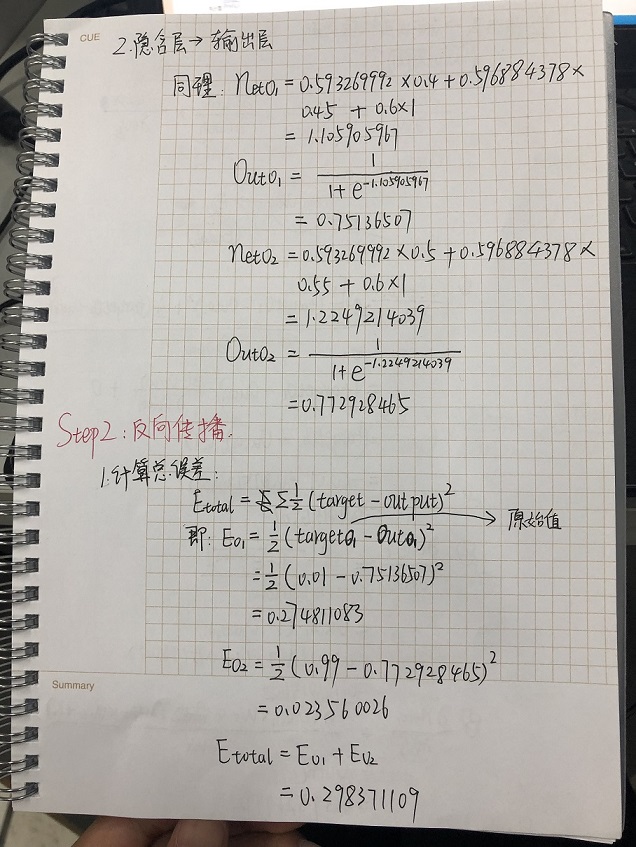 CUE
2.隐含层→输出层
同理: netO₁=0.593269992×0.4+0.596884378×
0.45 + 0.6×1
= 1.105905967
OutO₁ = 1/(1+e^-1.105905967)
= 0.75136507
netO₂ = 0.593269992×0.5+0.596884378×
0.55 + 0.6×1
= 1.2249214039
OutO₂ = 1/(1+e^-1.2249214039)
=0.772928465
Step2:反向传播.
1.计算总误差:
Etotal = Σ½(target-output)²
即: Eo₁ = ½(targeto₁ - Outo₁)² → 原始值
=½(0.01-0.75136507)²
=0.274811083
Eo₂ = ½(0.99-0.772928465)²
Summary
=0.023560026
Etotal = Eo₁ + Eo₂
= 0.298371109